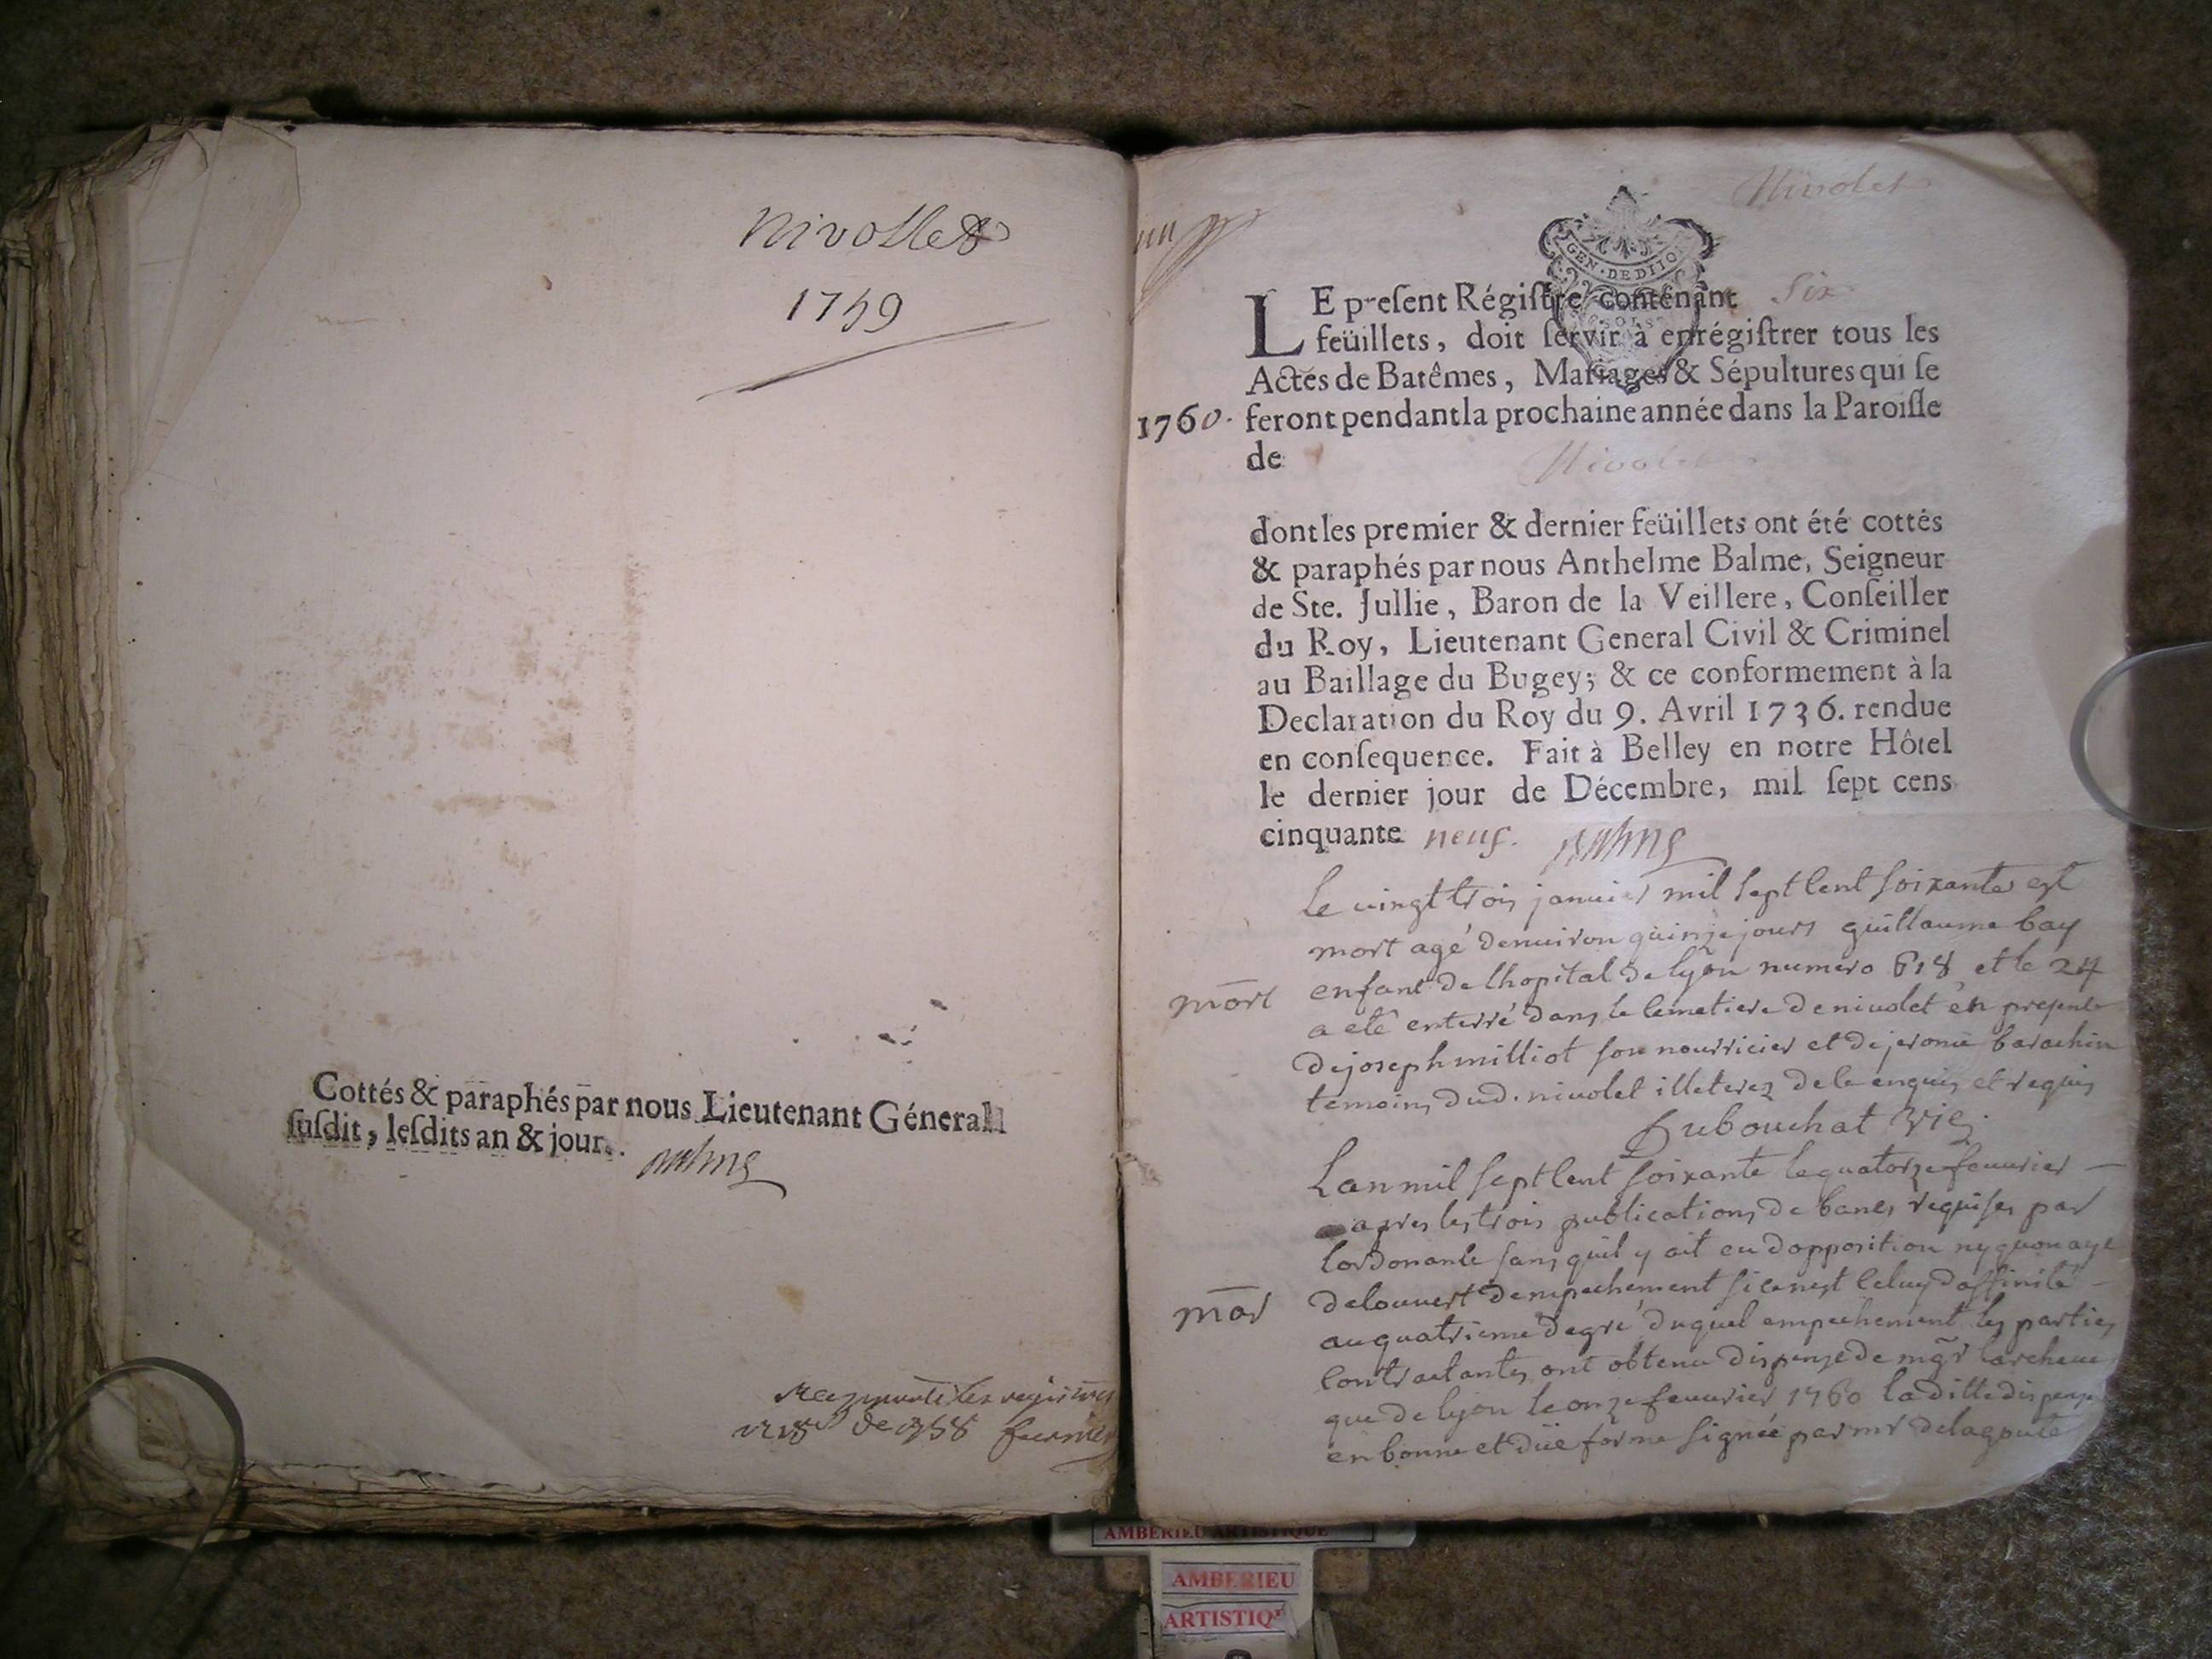 Nivollet
1759
Cottés & paraphés par nous Lieutenant Général
susdit, lesdits an & jour.
les registres
de 1758
un
Nivolet
GEN · DE DIJO
LE present Régistre contenant six
feüillets, doit servir à enrégistrer tous les
Actes de Batêmes, Mariages & Sépultures qui se
1760. feront pendant la prochaine année dans la Paroisse
de Nivolet
dont les premier & dernier feüillets ont été cottés
& paraphés par nous Anthelme Balme, Seigneur
de Ste. Jullie, Baron de la Veillere, Conseiller
du Roy, Lieutenant General Civil & Criminel
au Baillage du Bugey; & ce conformement à la
Declaration du Roy du 9. Avril 1736. rendue
en consequence. Fait à Belley en notre Hôtel
le dernier jour de Décembre, mil sept cens
cinquante neuf. Balme
Le vingt trois janvier mil sept cent soixante est
mort agé denuiron quinze jours guillaume bay
mort enfant de lhopital de lyon numero 618 et le 24
a eté enterré dans le cemetiere de niuolet en presence
de joseph milliot son nourricier et de jerome barachin
temoins dud. niuolet illeterez de ce enquis et requis
Dubouchat vic.
Lan mil sept cent soixante le quatorze feuurier
apres les trois publications de bancs requises par
lordonance sans quil y ait eu dopposition ny quon aye
mar decouuert dempechement si ce nest celuy daffinité
au quatrieme degré duquel empechement les parties
contractantes ont obtenu dispense de mgr larcheue
que de lyon le onze feuurier 1760 la ditte dispense
en bonne et düe forme signée par mr delagoute
AMBERIEU ARTISTIQUE
AMBERIEU
ARTISTIQ